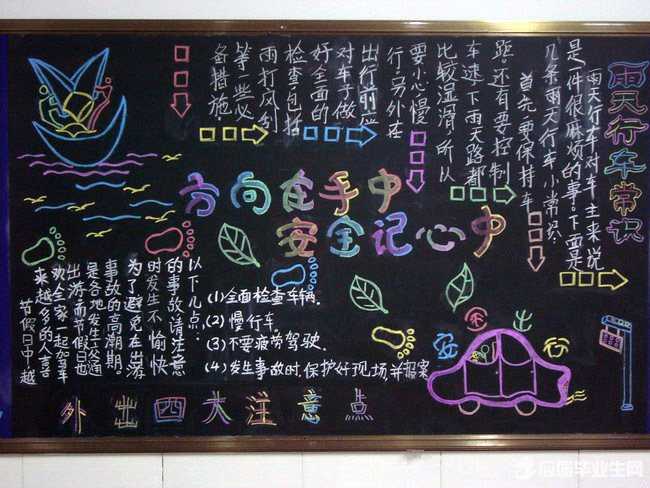 雨天行车常识
雨天行车对车主来说
是一件很麻烦的事。下面是
几条雨天行车小常识
首先要保持车
距,还有要控制
车速下雨天路都
比较湿滑,所以
要小心慢
行,另外在
出行前应
对车子做
好全面的
检查包括
雨打风刮
等一些必
备措施
方向在手中
安全记心中
节假日中越
来越多的人喜
欢全家一起驾车
出游,而节假日也
是各地发生交通
事故的高潮期。
为了避免在出游
时发生不愉快
的事故请注意
以下几点:
(1)全面检查车辆.
(2)慢行车.
(3)不要疲劳驾驶.
(4)发生事故时,保护好现场,并报案
安全出行
外出四大注意点
应届毕业生网